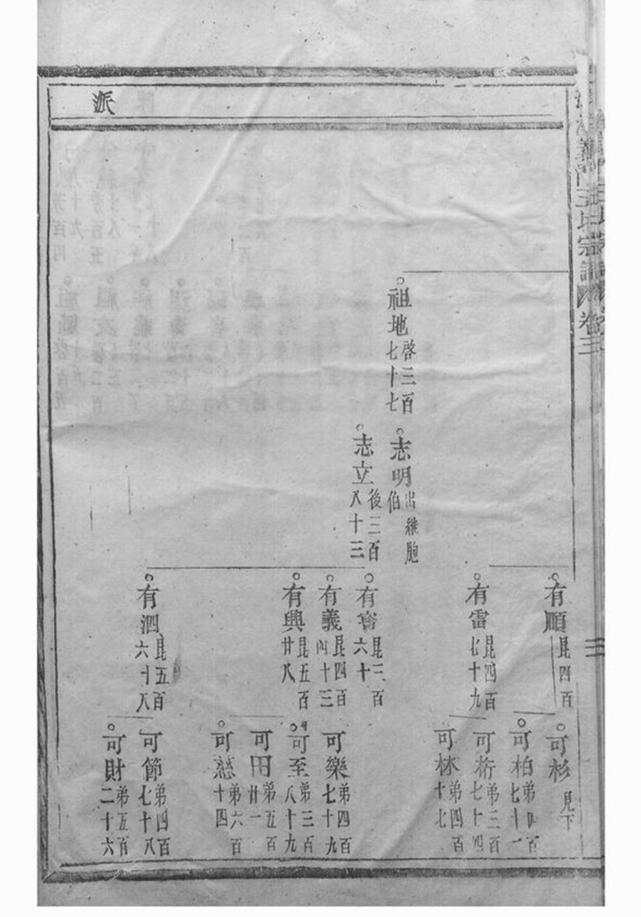 派
義門王氏宗譜 卷三
祖地 啓三百七十七
志明 出繼胞伯
志立 後三百八十三
有順 昆四百
有雷 昆四百七十九
有容 昆三百六十
有義 昆四百四十三
有興 昆五百廿八
有泗 昆五百六十八
可杉 見下
可柏 弟四百七十一
可桁 弟三百七十四
可林 弟四百十七
可樂 弟四百七十九
可至 弟三百八十九
可田 弟五百廿一
可慈 弟六百十四
可節 弟四百七十八
可財 弟五百二十六
三